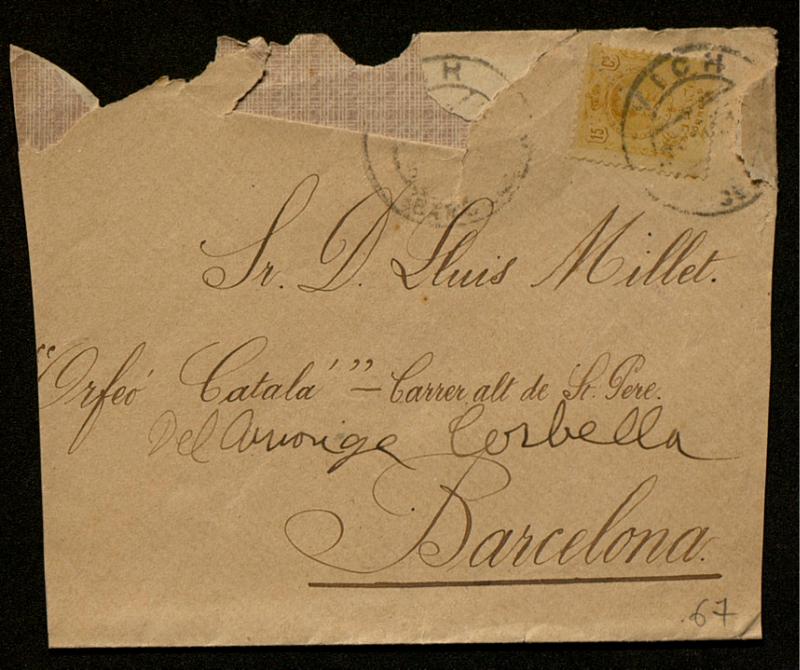 VICH
15
Sr. D. Lluis Millet.
"Orfeó Catalá" - Carrer alt de St. Pere.
Del Corbella
Barcelona.
67